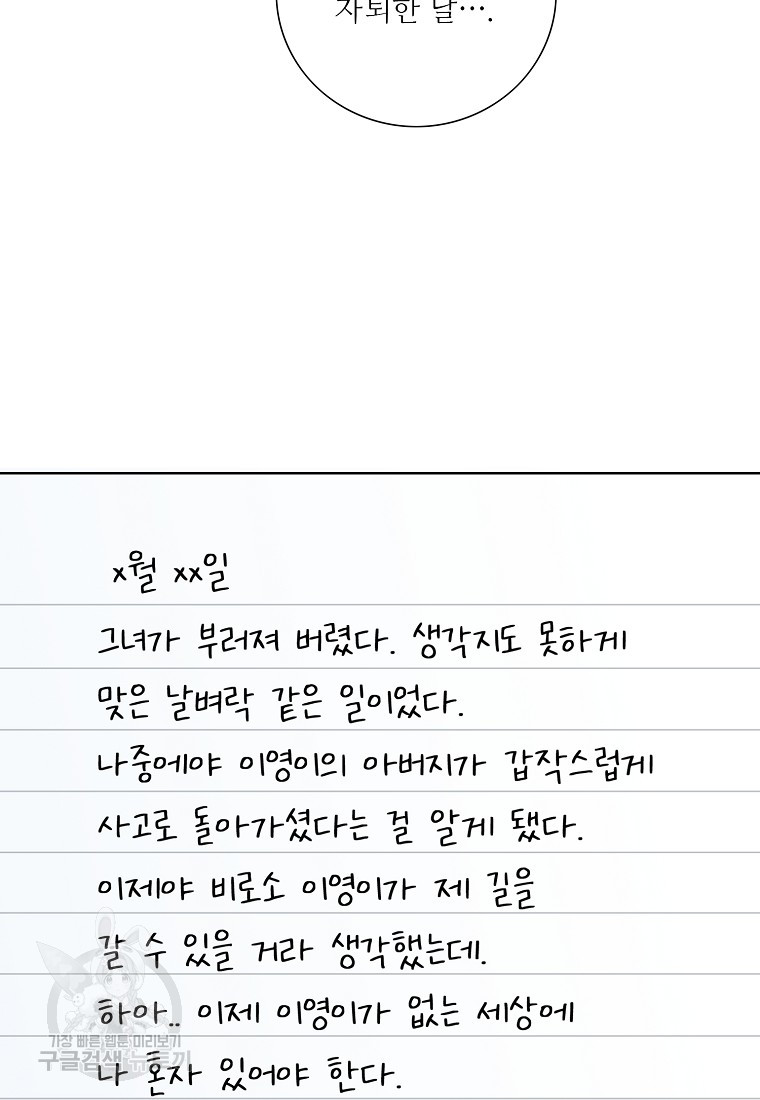 자퇴한 날….
x월 xx일
그녀가 부러져 버렸다. 생각지도 못하게
맞은 날벼락 같은 일이었다.
나중에야 이영이의 아버지가 갑작스럽게
사고로 돌아가셨다는 걸 알게 됐다.
이제야 비로소 이영이가 제 길을
갈 수 있을 거라 생각했는데.
하아.. 이제 이영이가 없는 세상에
가장 빠른 웹툰 미리보기
구글검색 뉴토끼
나 혼자 있어야 한다.